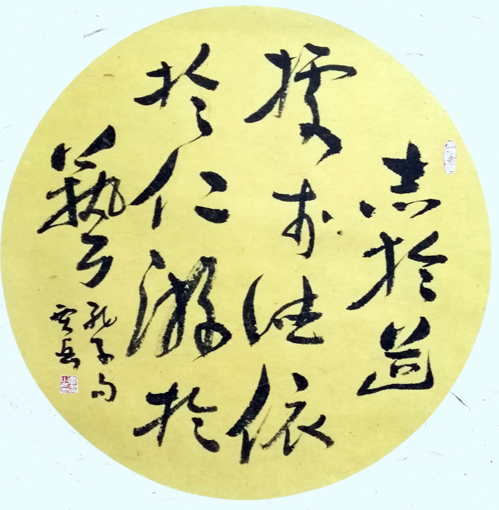 志於道
據於德依
於仁游於
藝
孔子句